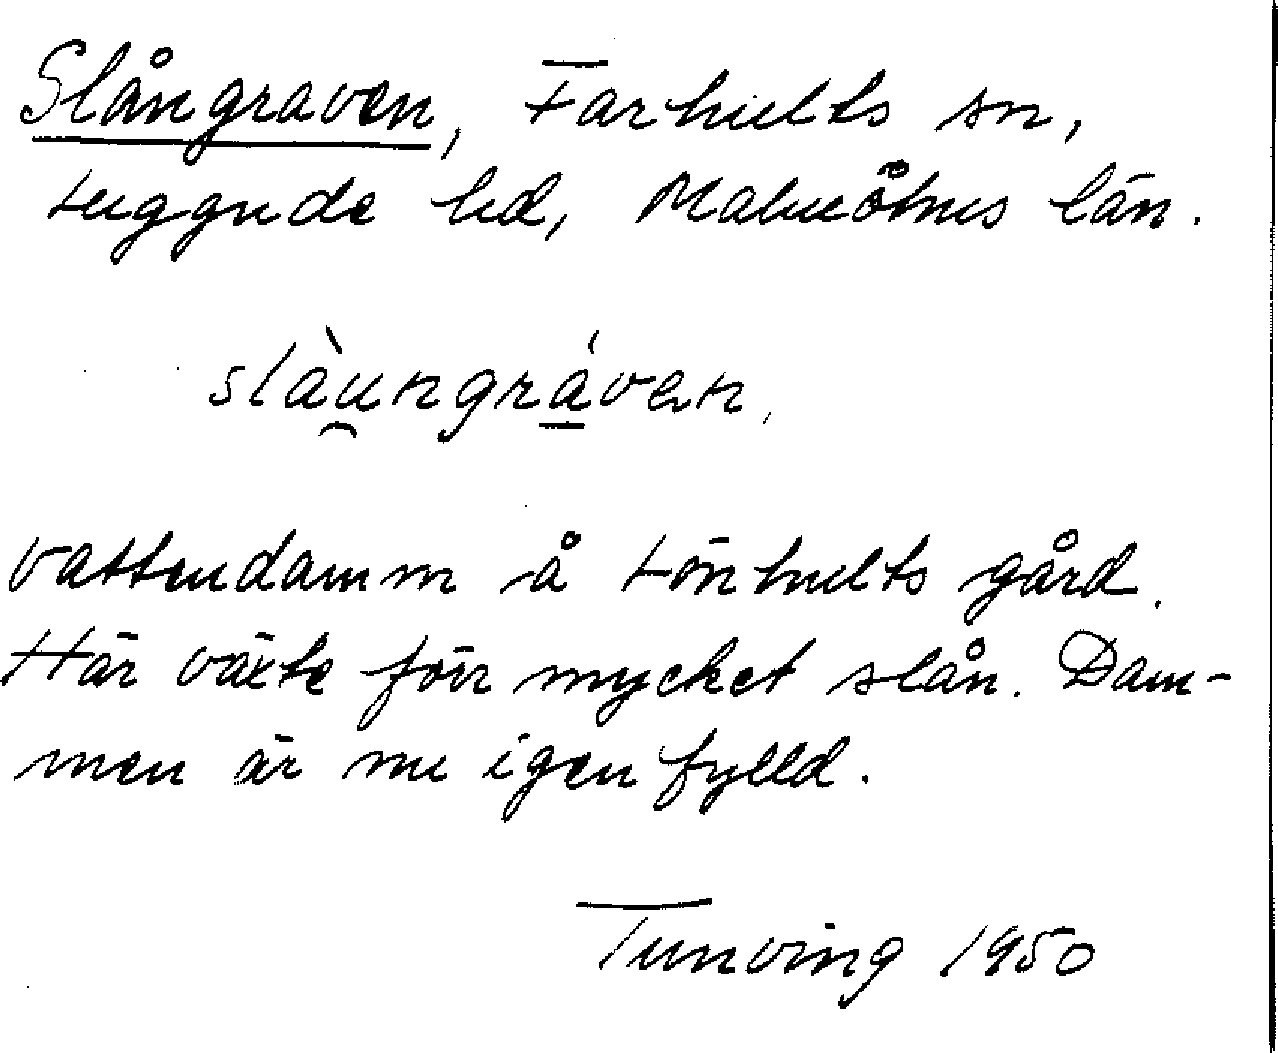 Slångraven, Farhults sn,
Luggude hd, Malmöhus län.
slàu̯ngrá̲ven,
Vattendamm å Lönhults gård.
Här växte förr mycket slån. Dam-
men är nu igenfylld.
Tunving 1950